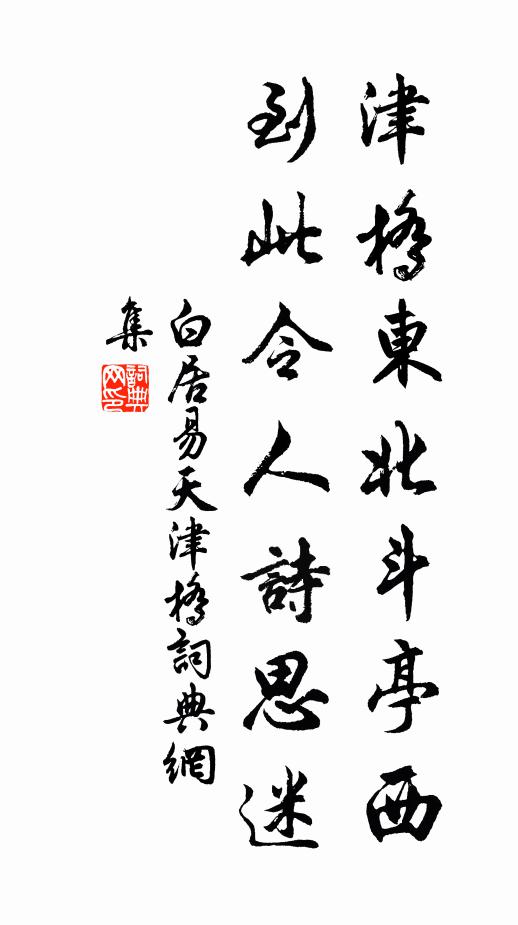 津橋東北斗亭西
到此令人詩思迷
白居易天津橋詞典網
集
詞典網印